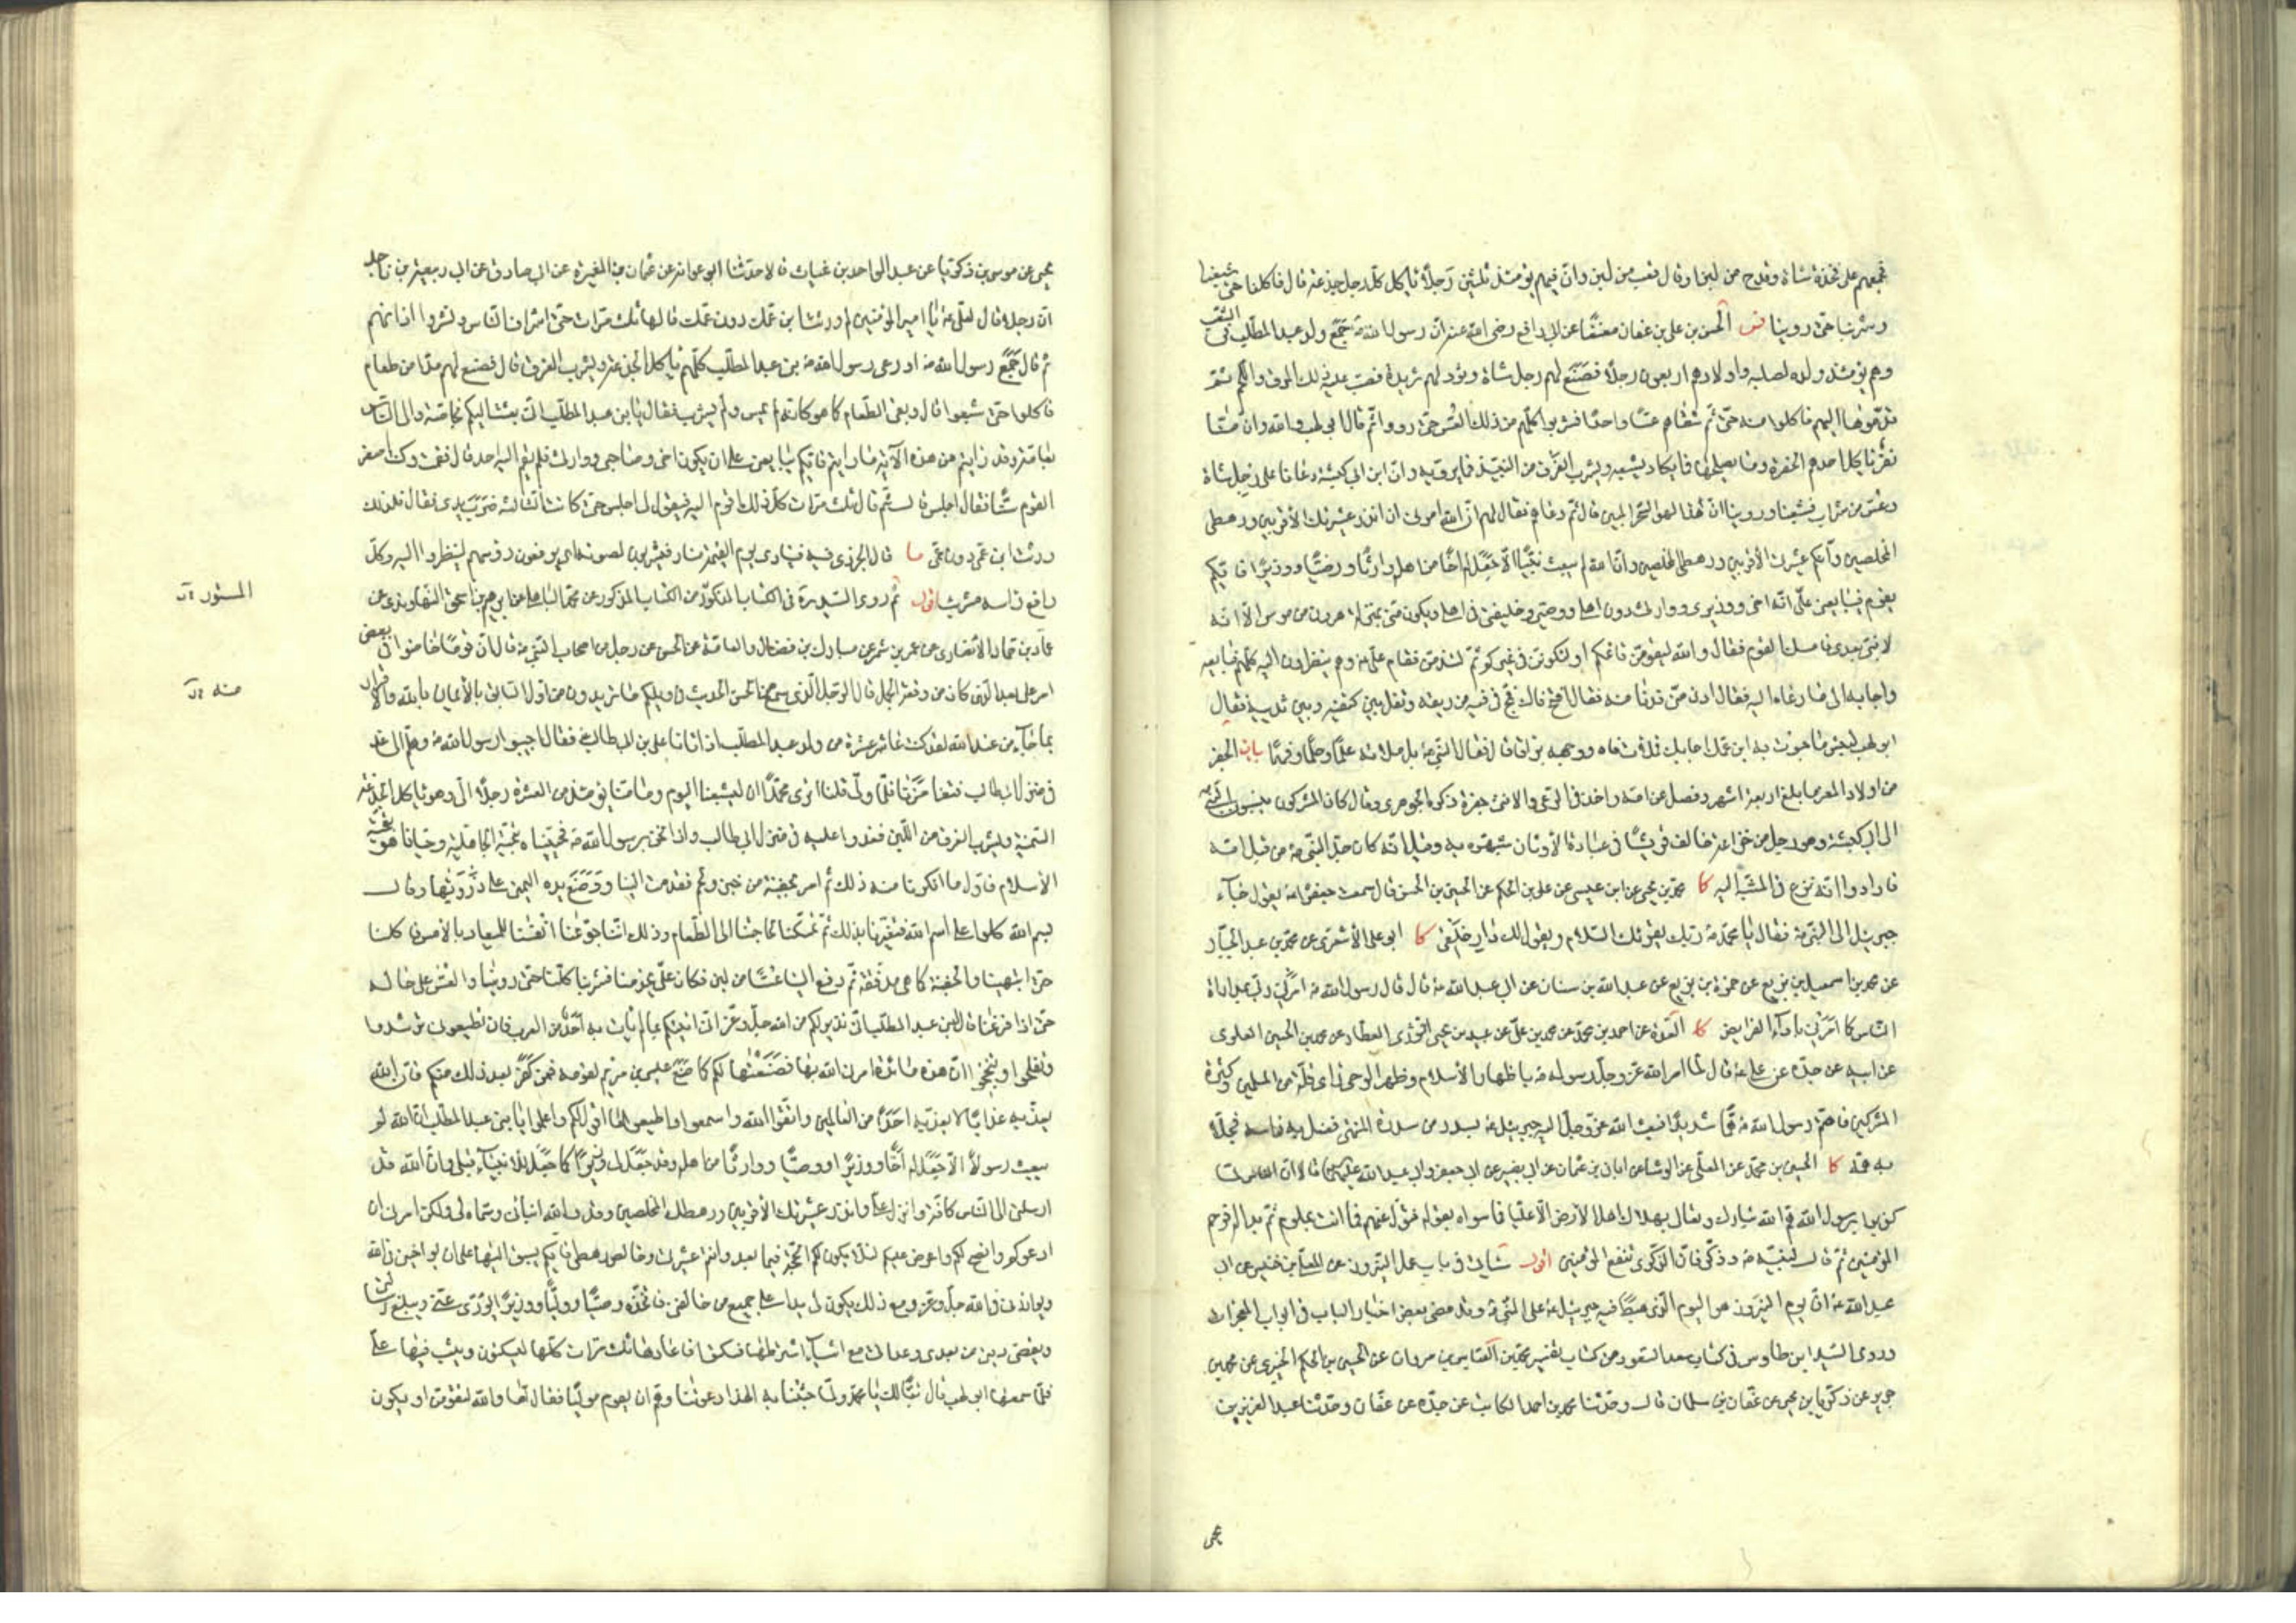 فجمعهم على فخذة شاة وقدح من لبن او قال قعب من لبن وان فيهم يومئذ ثلثين رجلا ياكل كل رجل جذعة قال فاكلنا حتى شبعنا
وشربنا حتى روينا الحسن بن علي بن عفان معنعنا عن ابي رافع رضي الله عنه ان رسول الله ص جمع ولد عبد المطلب في الشعب
وهم يومئذ ولده لصلبه واولادهم اربعون رجلا فصنع لهم رجل شاة وثرد لهم ثريدة فصب عليه ذلك المرق واللحم ثم
قدموها اليهم فاكلوا منه حتى ثم سقاهم عسا واحدا فشربوا كلهم من ذلك العس حتى رووا ثم قال ابو لهب والله وان منا
نفرا ياكل احدهم الجفرة وما يصلحها فما يكاد يشبعه ويشرب الفرق من النبيذ فما يرويه وان ابن ابي كبشة دعانا على رجل شاة
وعس من شراب فشبعنا وروينا ان هذا لهو السحر المبين قال ثم دعاهم فقال لهم ان الله امرني ان انذر عشيرتك الأقربين ورهطي
المخلصين وانكم عشيرتي الأقربين ورهطي المخلصين وان الله لم يبعث نبيا الا جعل له اخا من اهله وارثا ووصيا ووزيرا فايكم
يقوم فيبايعني على انه اخي ووزيري ووارثي دون اهلي ووصيي وخليفتي في اهلي ويكون مني بمنزلة هرون من موسى الا انه
لا نبي بعدي فامسك القوم فقال والله ليقومن قائمكم او ليكونن في غيركم ثم لتندمن فقام علي ع وهم ينظرون اليه كلهم فبايعه
واجابه الى ما دعاه اليه فقال ادن مني فدنا منه فقال افتح فاك فمج في فيه من ريقه وتفل بين كتفيه وبين ثدييه فقال
ابو لهب لبئس ما حبوت به ابن عمك اجابك فملأت فاه ووجهه بزاقا قال فقال النبي ص بل ملأته علما وحلما وفهما بيان الجفر
من اولاد المعز ما بلغ اربعة اشهر وفصل عن امه واخذ في الرعي والانثى جفرة ذكره الجوهري وقال كان المشركون ينسبون النبي ص
الى ابي كبشة وهو رجل من خزاعة خالف قريشا في عبادة الأوثان شبهوه به وقيل انه كان جد النبي ص من قبل امه
فارادوا انه نزع في الشبه اليه كا محمد بن يحيى عن ابن عيسى عن علي بن الحكم عن الحسين بن الحسن قال سمعت جعفرا ع يقول جاء
جبرئيل الى النبي ص فقال يا محمد ص ربك يقرئك السلام ويقول لك دار خلقي كا ابو علي الأشعري عن محمد بن عبد الجبار
عن محمد بن اسمعيل بن بزيع عن حمزة بن بزيع عن عبد الله بن سنان عن ابي عبد الله ع قال قال رسول الله ص امرني ربي بمداراة
الناس كما امرني باداء الفرايض كا العدة عن احمد بن محمد عن محمد بن علي عن عبيد بن يحيى الثوري العطار عن محمد بن الحسين العلوي
عن ابيه عن جده عن علي ع قال لما امر الله عز وجل رسوله ص باظهار الأسلام وظهر الوحي راى قلة من المسلمين وكثرة
المشركين فاهتم رسول الله ص هما شديدا فبعث الله عز وجل اليه جبرئيل ع بسدر من سدرة المنتهى فغسل به راسه فجلا
به همه كا الحسين بن محمد عن المعلى عن الوشاء عن ابان بن عثمان عن ابي بصير عن ابي جعفر وابي عبد الله عليهما قالا ان الناس لما
كذبوا برسول الله هم الله تبارك وتعالى بهلاك اهل الأرض الا عليا فما سواه بقوله فتول عنهم فما انت بملوم ثم بدا له فرحم
المؤمنين ثم قال لنبيه ص وذكر فان الذكرى تنفع المؤمنين اقول سياتي في باب عمل النيروز عن المعلى بن خنيس عن ابي
عبد الله ع ان يوم النيروز هو اليوم الذي هبط فيه جبرئيل ع على النبي ص وقد مضى بعض اخبار الباب في ابواب المعجزات
وروى السيد ابن طاوس في كتاب سعد السعود من كتاب تفسير محمد بن العباس بن مروان عن الحسين بن الحكم الخبري عن محمد بن
جرير عن زكريا بن يحيى عن عفان بن سلمان قال وحدثنا محمد بن احمد الكاتب عن جده عن عفان وحدثنا عبد العزيز بن
يحيى عن موسى بن زكريا عن عبد الواحد بن غياث قالا حدثنا ابو عوانة عن عثمان بن المغيرة عن ابي صادق عن ابي ربيعة بن ناجد
ان رجلا قال لعلي ع يا امير المؤمنين لم ورثت ابن عمك دون عمك قالها ثلث مرات حتى اشراب الناس ونشروا اذانهم
ثم قال جمع رسول الله ص او دعى رسول الله ص بني عبد المطلب كلهم ياكل الجذعة ويشرب الفرق قال فصنع لهم مدا من طعام
فاكلوا حتى شبعوا قال وبقي الطعام كما هو كانه لم يمس ولم يشرب فقال يا بني عبد المطلب اني بعثت اليكم بخاصة والى الناس
بعامة وقد رايتم من هذه الآية ما رايتم فايكم يبايعني على ان يكون اخي وصاحبي ووارثي فلم يقم اليه احد قال فقمت وكنت اصغر
القوم سنا فقال اجلس قال ثم قال ثلث مرات كل ذلك اقوم اليه فيقول لي اجلس حتى كانت الثالثة ضرب بيده على يدي فقال فلذلك
ورثت ابن عمي دون عمي
رافع راسه اقول ثم روى السيد ره في الكتاب المذكور من الكتاب المذكور عن محمد الباهلي عن ابرهيم بن اسحق النهاوندي عن
عمار بن حماد الأنصاري عن عمرو بن شمر عن مبارك بن فضالة والعامة عن الحسن عن رجل من اصحاب النبي ص قال ان قوما خاضوا في بعض
امر علي بعد الذي كان من وقعة الجمل قال الرجل الذي سمع من الحسن الحديث ويلكم ما تريدون من اول السابق بالأيمان بالله والاقرار
بما جاء من عند الله لقد كنت عاشر عشرة من ولد عبد المطلب اذ اتانا علي بن ابي طالب ع فقال اجيبوا رسول الله ص وهلم الى غد
في منزل ابي طالب فتغامزنا فلما ولى قلنا اترى محمدا ان يشبعنا اليوم وما منا يومئذ من العشرة رجل الا وهو ياكل الجذعة
السمينة ويشرب الفرق من اللبن فغدوا عليه في منزل ابي طالب واذا نحن برسول الله ص فحييناه بتحية الجاهلية وحيانا هو بتحية
الأسلام فاول ما انكرنا منه ذلك ثم امر بجفنة من خبز ولحم فقدمت الينا ووضع يده اليمنى على ذروتها وقال
بسم الله كلوا على اسم الله فتغيرنا لذلك ثم تمسكنا لحاجتنا الى الطعام وذلك اننا جوعنا انفسنا للميعاد بالأمس فاكلنا
حتى انتهينا والجفنة كما هي مدفقة ثم دفع الينا عسا من لبن فكان علي يخدمنا فشربنا كلنا حتى روينا والعس على حاله
حتى اذا فرغنا قال يا بني عبد المطلب اني نذير لكم من الله جل وعز اني اتيتكم بما لم يات به احد من العرب فان تطيعوني ترشدوا
وتفلحوا وتنجحوا ان هذه مائدة امرني الله بها فصنعتها لكم كما صنع عيسى بن مريم لقومه فمن كفر بعد ذلك منكم فان الله
يعذبه عذابا لا يعذبه احدا من العالمين واتقوا الله واسمعوا واطيعوا ما اقول لكم واعلموا يا بني عبد المطلب ان الله لم
يبعث رسولا الا جعل له اخا ووزيرا ووصيا ووارثا من اهله وقد جعل لي وزيرا كما جعل للأنبياء قبلي وان الله قد
ارسلني الى الناس كافة وانزل علي وانذر عشيرتك الأقربين ورهطك المخلصين وقد والله انباني به وسماه لي ولكن امرني ان
ادعوكم وانصح لكم واعرض عليكم لئلا يكون لكم الحجة فيما بعد وانتم عشيرتي وخالص رهطي فايكم يسبق اليها على ان يواخيني في الله
ويوازرني في الله جل وعز ومع ذلك يكون لي يدا على جميع من خالفني فاتخذه وصيا ووليا ووزيرا يؤدي عني ويبلغ رسالتي
ويقضي ديني من بعدي وعداتي مع اشياء اشترطها فسكتوا فاعادها ثلث مرات كلها يسكتون ويثب فيها علي
فلما سمعها ابو لهب قال تبا لك يا محمد ولما جئتنا به الهذا دعوتنا وهم ان يقوم موليا فقال اما والله لتقومن او يكون
منه